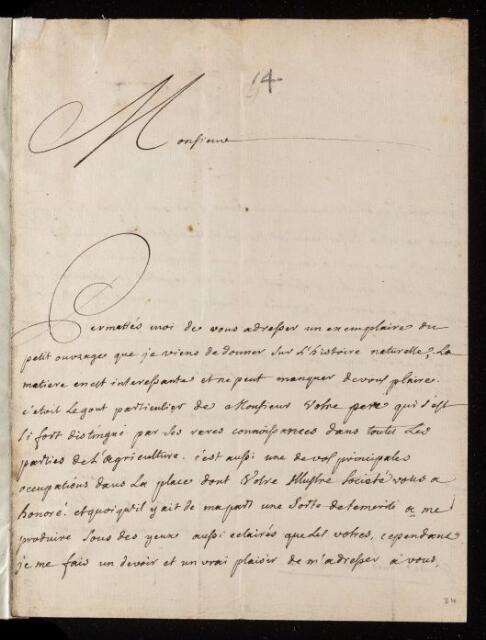 54
Monsieur
Permettés moi de vous adresser un exemplaire du
petit ouvrage que je viens de donner sur l'histoire naturelle, La
matiere en est interessante et ne peut manquer de vous plaire.
c'étoit Le gout particulier de Monsieur Votre pere qui s'est
si fort distingué par ses rares connoissances dans toutes Les
parties de L'agriculture. c'est aussi une de vos principales
occupations dans La place dont Votre Illustre société vous a
honoré. et quoiqu'il y ait de ma part une sorte de temerité a me
produire sous des yeux aussi eclairés que Les votres, cependant
je me fais un devoir et un vrai plaisir de m'adresser a vous,
34